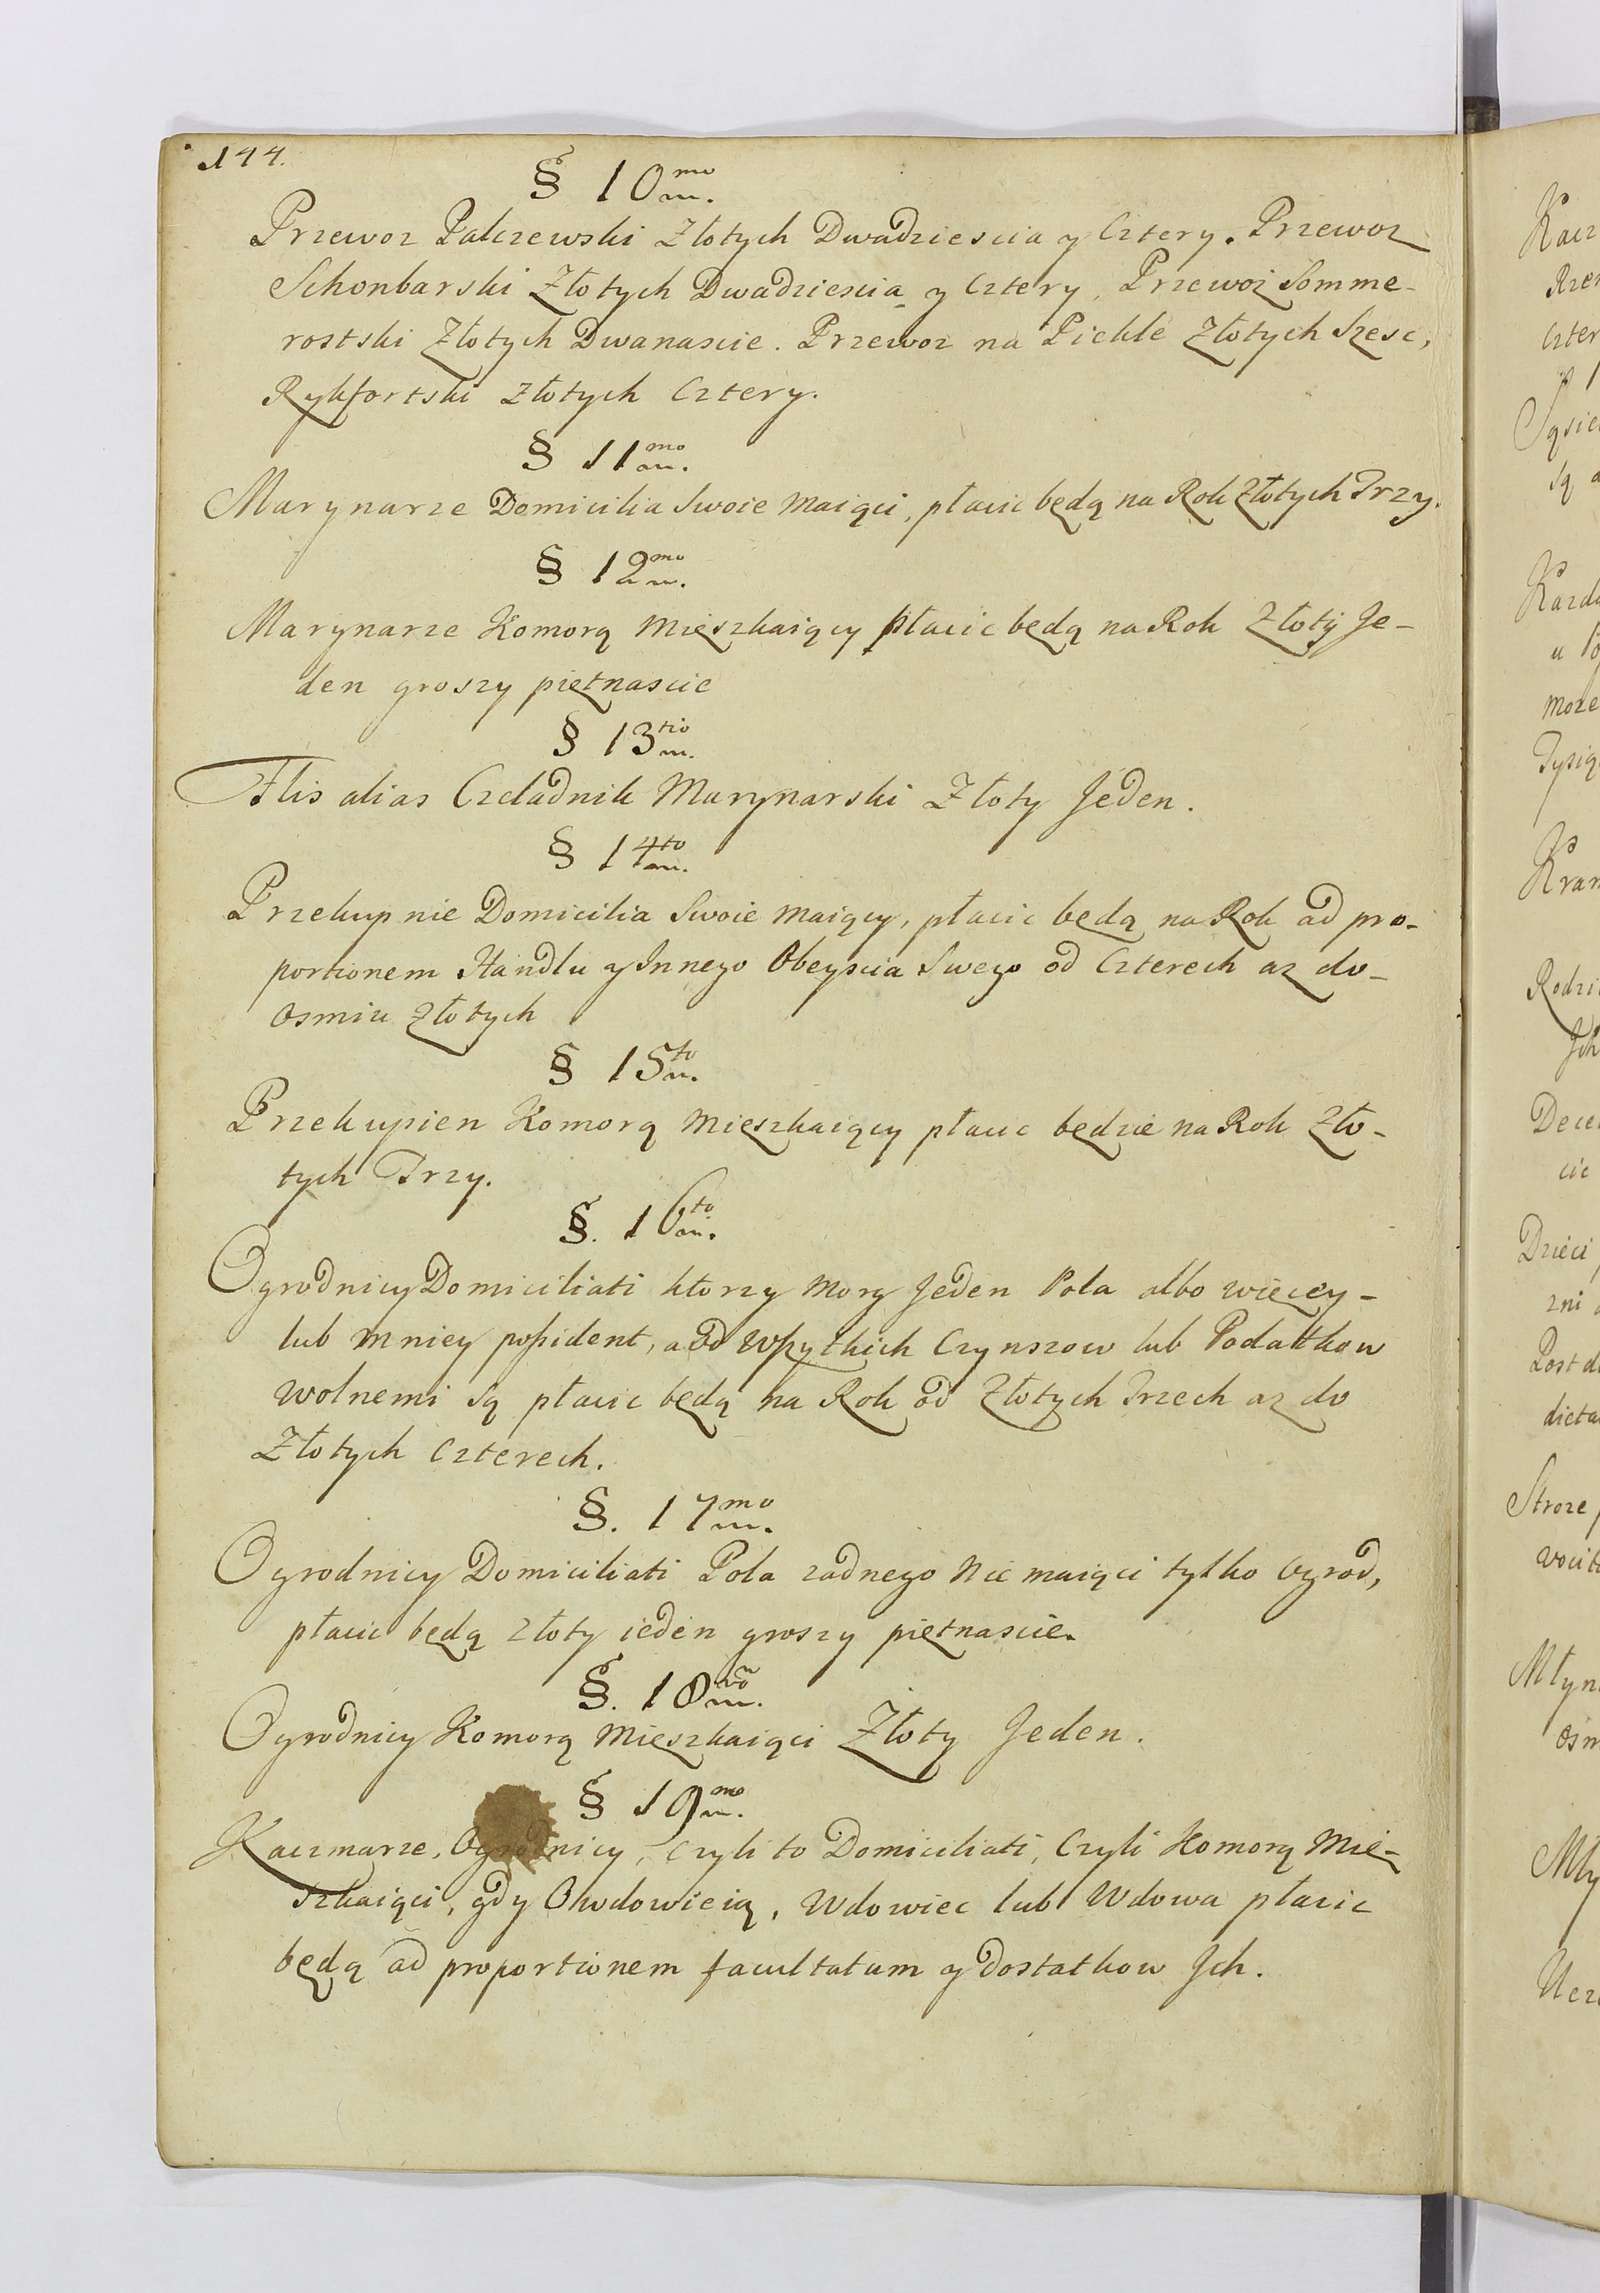 144.
§ 10mo
Przewoz Palczewski Złotych Dwadziescia y Cztery. Przewoz
Schonbarski Złotych Dwadziescia y Cztery, Przewoz Somme-
rostski Złotych Dwanascie. Przewoz na Piekle Złotych Szesc,
Rykfortski Złotych Cztery.
§ 11mo
Marynarze Domicilia Swoie maiąci, płacic będą na Rok Złotych Trzy.
§ 12mo
Marynarze Komorą Mieszkaiący płacic będą na Rok Złoty Je-
den groszy piętnascie
§ 13tio
Flis alias Czeladnik Marynarski Złoty Jeden.
§ 14to
Przekupnie Domicilia Swoie maiący, płacic będą na Rok ad pro-
portionem Handlu y Innego Obeyscia Swego od Czterech az do-
Osmiu Złotych
§ 15to
Przekupien Komorą Mieszkaiący płacic będzie na Rok Zło-
tych Trzy.
§. 16to
Ogrodnicy Domiciliati ktorzy Morg Jeden Pola albo więcey-
lub mniey possident, a od wszytkich Czynszow lub Podatkow
wolnemi są płacic będą na Rok od Złotych Trzech az do
Złotych Czterech.
§. 17mo
Ogrodnicy Domiciliati Pola zadnego Nie maiąci tylko Ogrod,
płacic będą złoty ieden groszy piętnascie.
§. 18vo
Ogrodnicy Komorą Mieszkaiąci Złoty Jeden.
§ 19mo
Kaczmarze, Ogrodnicy, Czyli to Domiciliati, Czyli Komorą Mie-
szkaiąci, gdy Owdowieią, Wdowiec lub Wdowa płacic
będą ad proportionem facultatum y Dostatkow Jch.